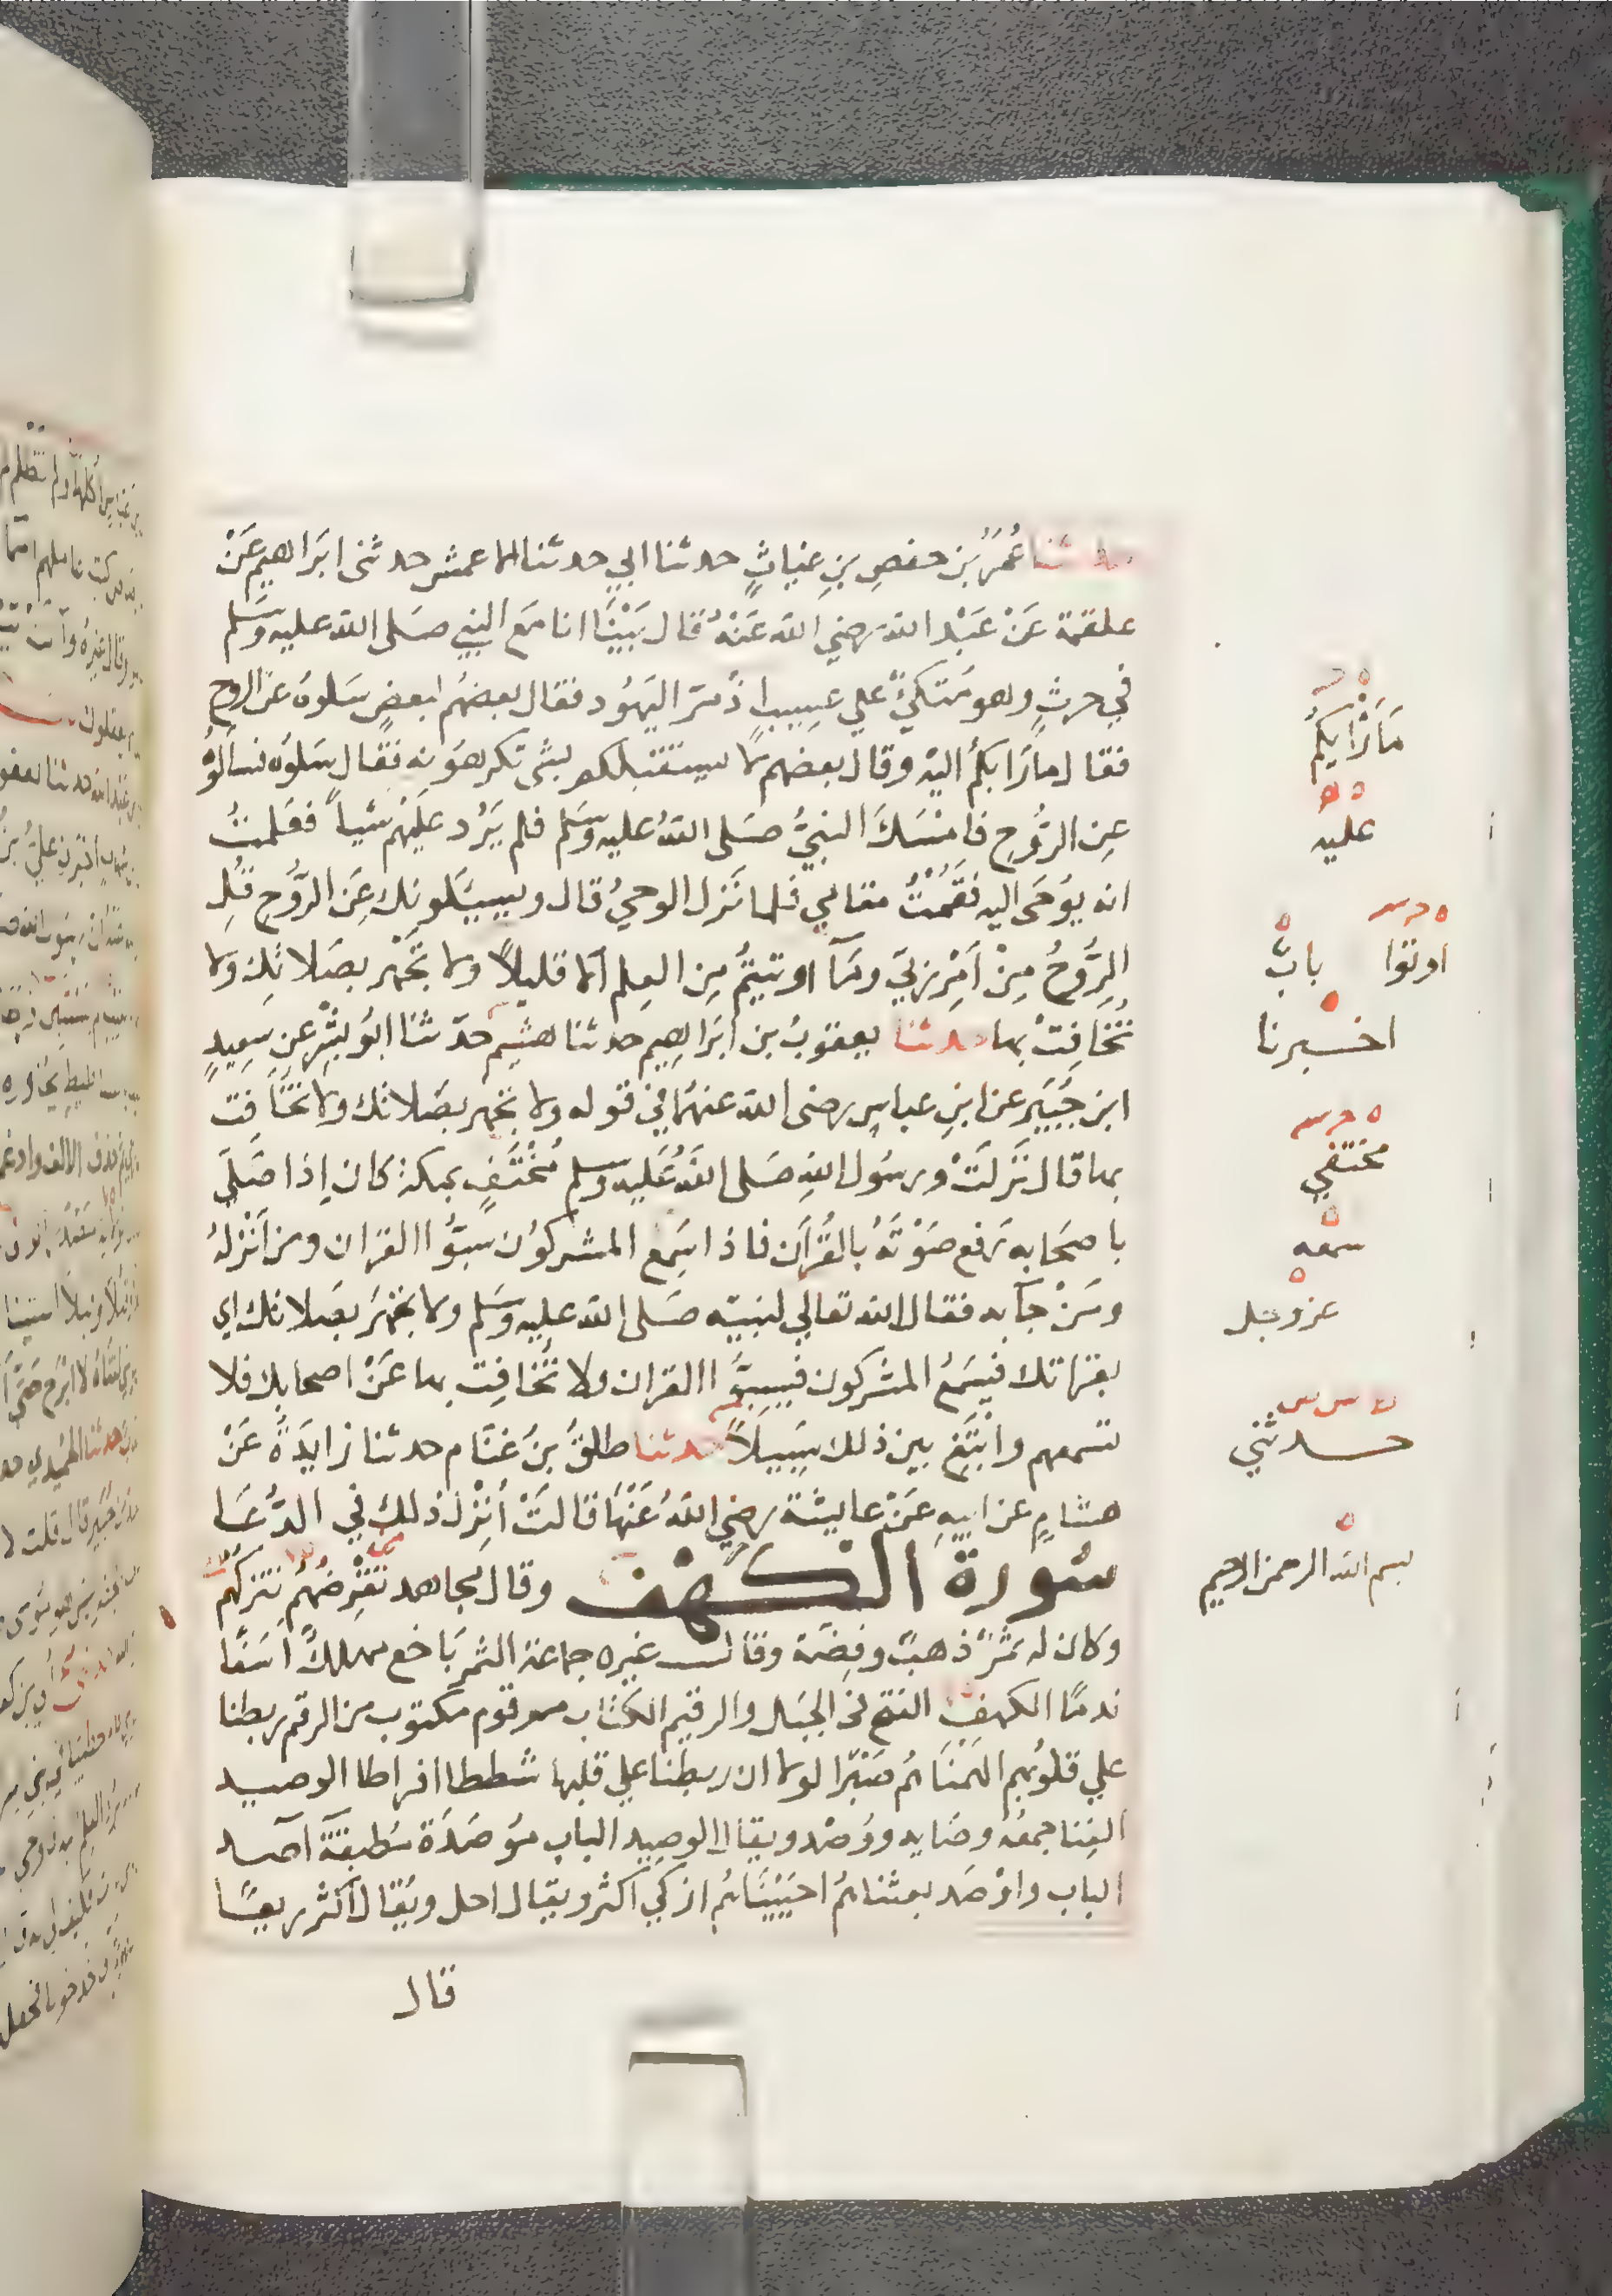 حدثنا عُمَرُ بْن حفصِ بنِ غياثٍ حدثنا ابي حدثنا الاعمش حدثنى ابَراهيم عَنْ
علقمة عَنْ عَبْد الله رضي الله عَنْهُ قال بَيْنَا انا مَع النبي صَلى الله عليه وَسَلم
في حرثٍ وهو مُتكيٌ علي عسيبٍ اذ مَرّ اليَهُود فقال بعضهُم لبعضٍ سَلوهُ عن الروح
فقال مارَابكُم اليْه وقال بعضهم لا يستقبلكم بشى تكرهوُنه فقال سَلوُه فسألوُ
عِن الرُّوح فامْسَكَ النبيُّ صَلى اللهُ عليه وَسَلم فلم يَرُد عليْهم شياً فعَلمتُ
انه يوُحَى اليه فقُمْتُ مقامي فلما نَزل الوحيُ قال ويسئلونك عِن الرُّوح قُلِ
الرُّوحُ مِنْ اَمْرِ رَبي ومَآ اوتيتمُ مِن العِلم الا قليلاً ولا تجْهَر بصَلاتِك ولا
تُخافِتْ بها حدثنا يعقوبُ بن ابَراهِيم حدثنا هشيم حدّثنا ابوُ بشْر عن سعِيدٍ
ابن جُبَيَر عن ابنِ عباسٍ رضى الله عنهُما في قوله ولا تجهر بصَلاتك ولا تخَافت
بها قال نَزلَتْ ورسُول اللهِ صَلى اللهُ عَليه وَسلم مُخْتَفٍ بمكة كان اِذا صَلَى
باصحَابه رَفع صَوْتَهُ بالقُرْآن فاذا سَمِع المشركوُن سَبوُّا القران ومن اَنْزلهُ
ومَنْ جآ به فقال الله تعالي لنبيّه صَلى الله عليه وَسَلم ولا تجْهَر بصَلاتك اي
بقراتك فيَسْمَعُ المشركون فيسبوُّا القران ولا تُخافِت بها عَنْ اصحابك فلا
تسمعهم وابْتَغِ بين ذلك سَبيلاً حدثنا طلقُ بنُ غنَام حدثنا زايدَةُ عَنْ
هشامٍ عن ابيهِ عَنْ عايشة رضي اللهُ عَنْهَا قالتْ اُنِزْل ذلك في الدُّعَا
سُورة الكَهْف وقال مُجاهد تقْرِضهُم تتركهُمْ
وكان له ثمُرٌ ذهبٌ وفِضَة وقال غيره جماعة الثمر بَاخع مهلكٌ اسَفًا
ندمًا الكهف الفتح في الجبَل والرقيم الكتاب مرقوم مكتوب من الرقم ربطنا
علي قلوُبهم الهمْنَاهُم صَبْرًا لولا ان ربطنا علي قلبها شططا افراطا الوصيد
الفِنا جمعُه وصَايد ووُصْد ويقال الوصِيد الباب موُصَدَة مُطبقَة آصد
الباب واوْصَد بعثناهُم احيَيْنَاهُم ازكي اكثر ويقال احل ويُقال اكثر ريعًا
قال
مَارَايكُم
عليه
اوتوا
بابٌ
اخبرنا
مختفي
سمعه
عز وجل
حدثني
بسم الله الرحمن الرحيم